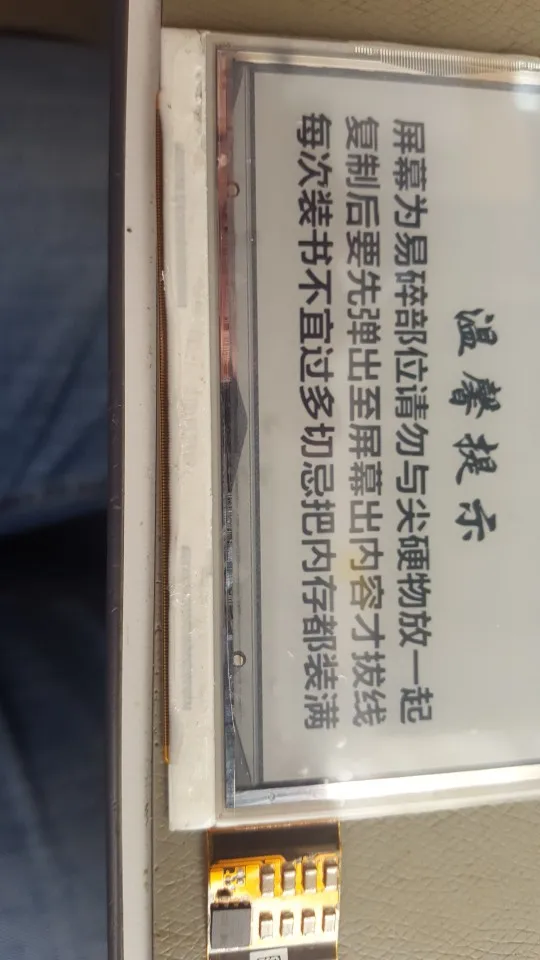 温馨提示
屏幕为易碎部位请勿与尖硬物放一起
复制后要先弹出至屏幕出内容才拔线
每次装书不宜过多切忌把内存都装满